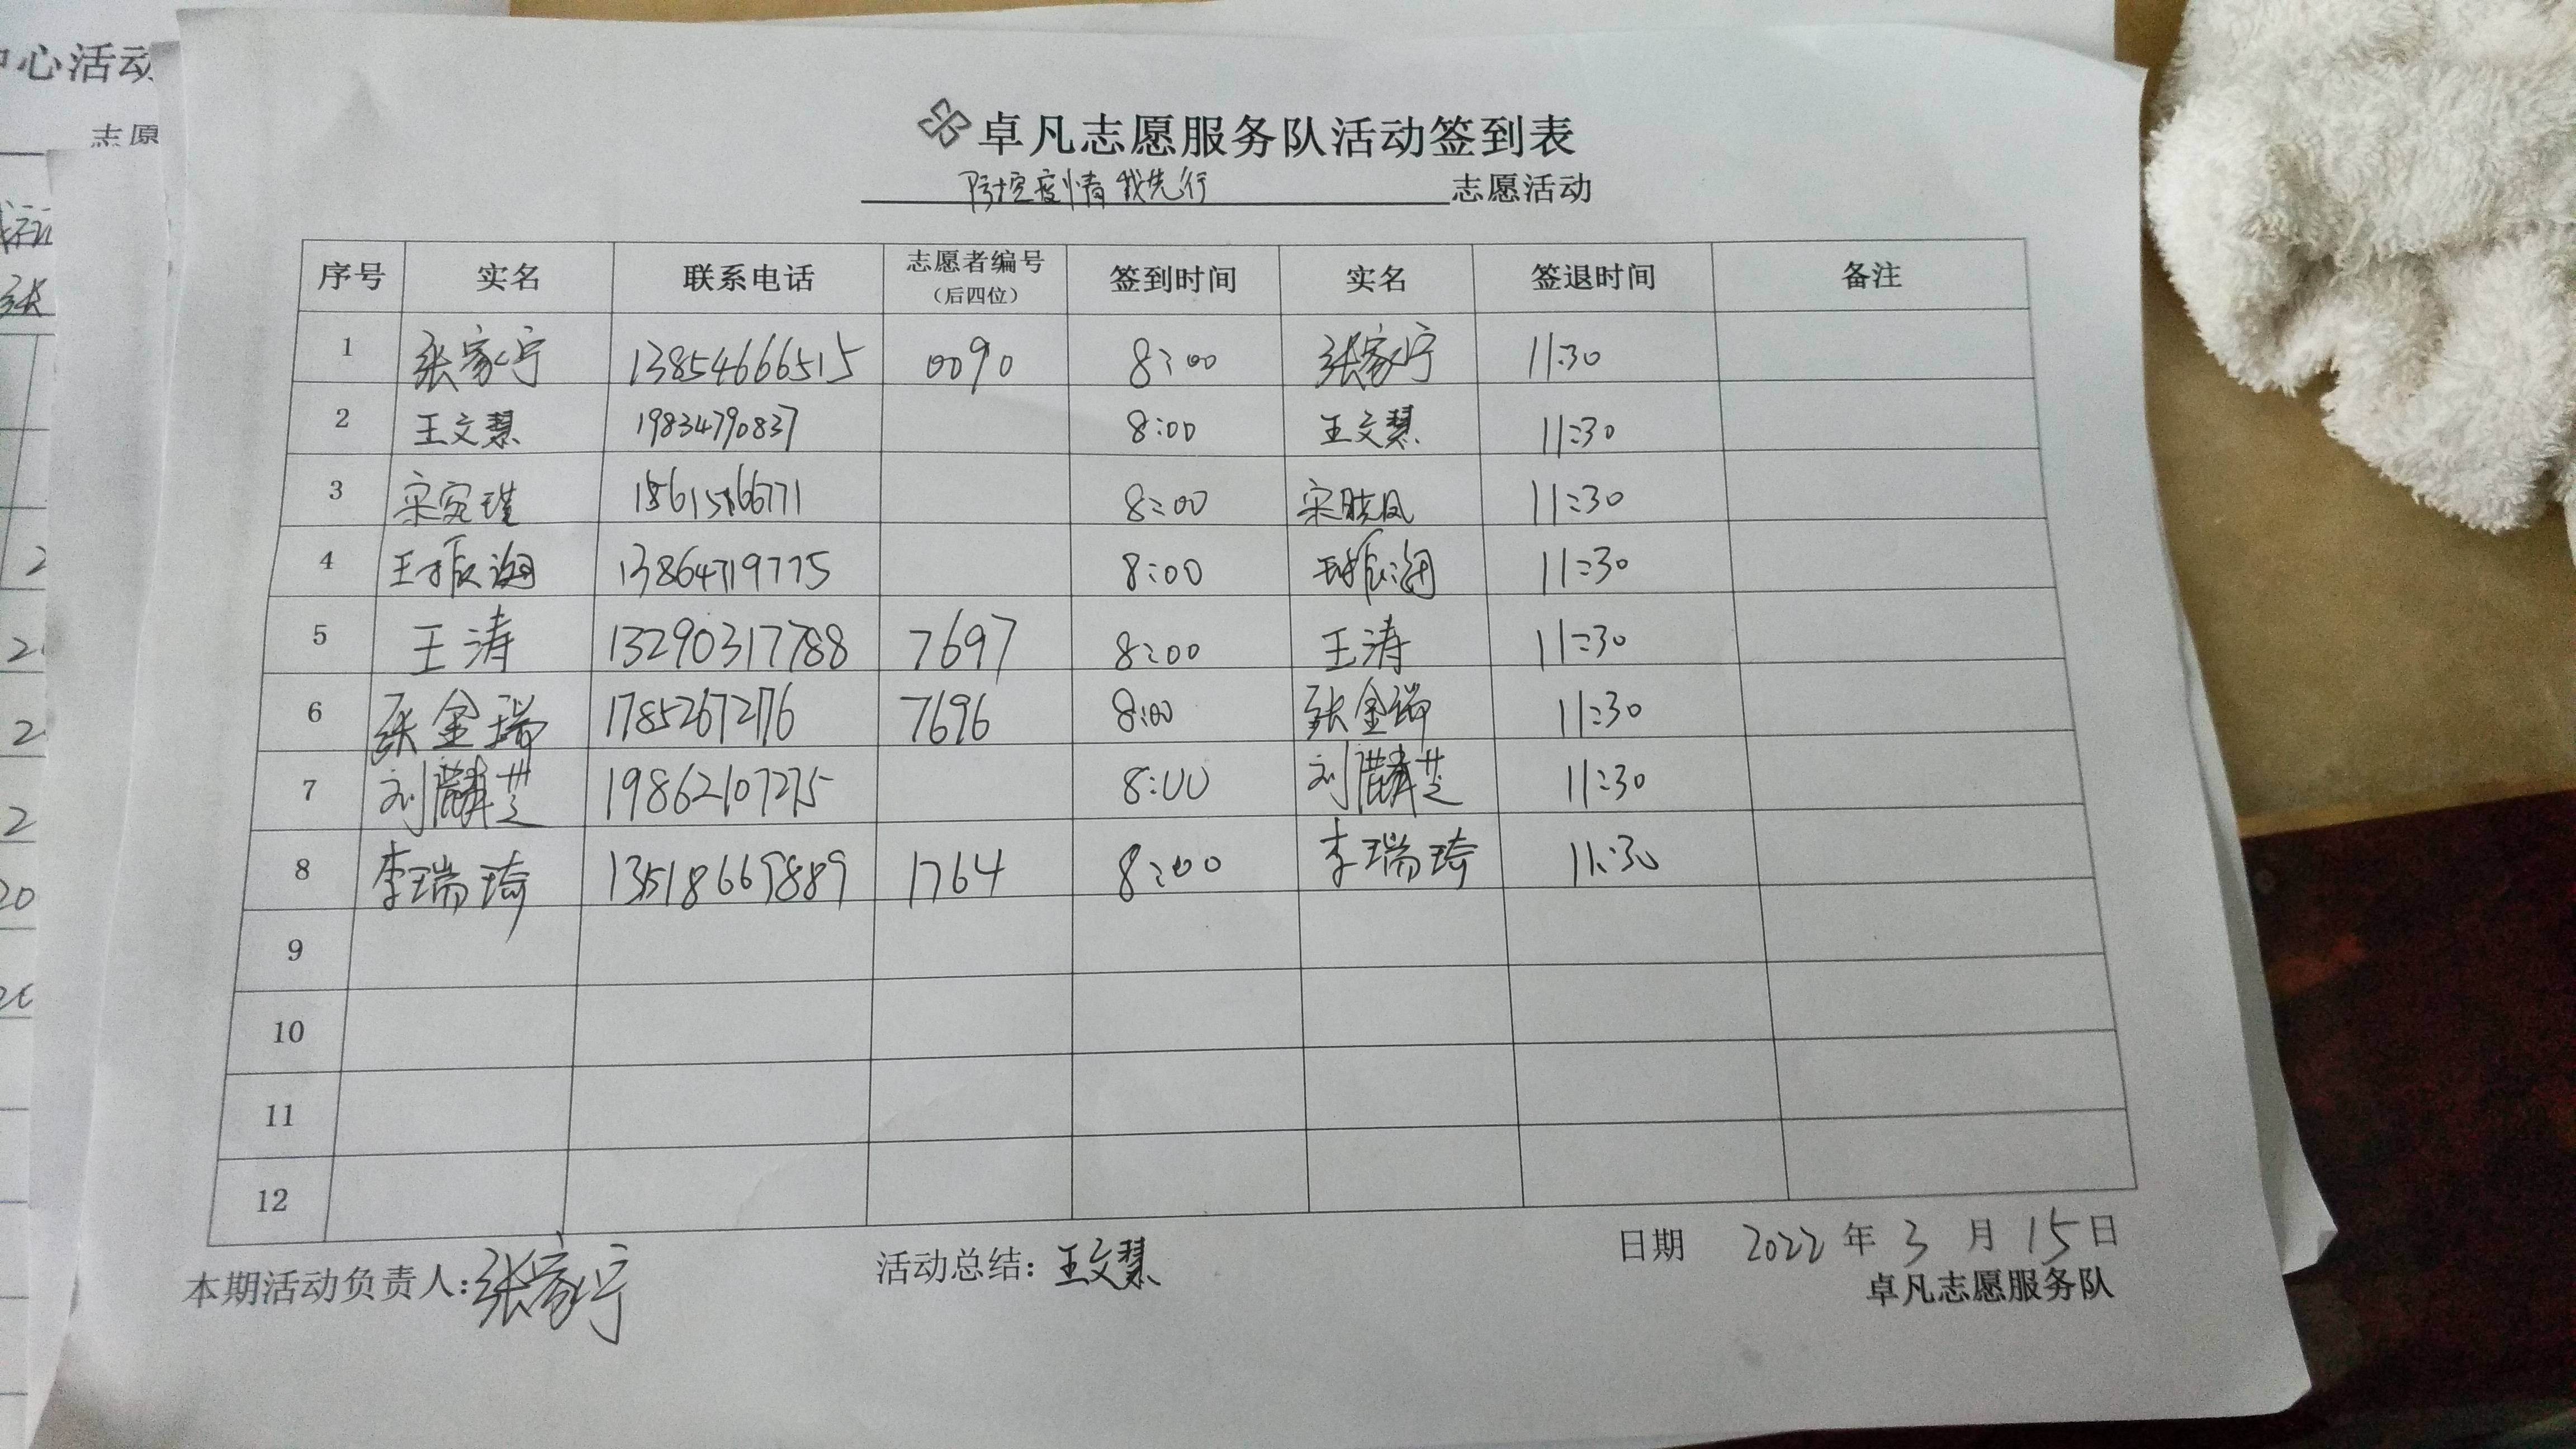 中心活动
志愿
卓凡志愿服务队活动签到表
防控疫情我先行 志愿活动
序号 实名 联系电话 志愿者编号（后四位） 签到时间 实名 签退时间 备注
1 张家宁 13854666515 0090 8:00 张家宁 11:30
2 王文慧 19834790837 8:00 王文慧 11:30
3 宋宛瑾 8:00 宋晓凤 11:30
4 王振海 13864719775 8:00 王振海 11:30
5 王涛 13290317788 7697 8:00 王涛 11:30
6 张金瑞 17852672176 7696 8:00 张金瑞 11:30
7 刘麟芝 19862107275 8:00 刘麟芝 11:30
8 李瑞琦 13518669889 1764 8:00 李瑞琦 11:30
9
10
11
12
本期活动负责人：张家宁 活动总结：王文慧 日期 2022年3月15日
卓凡志愿服务队